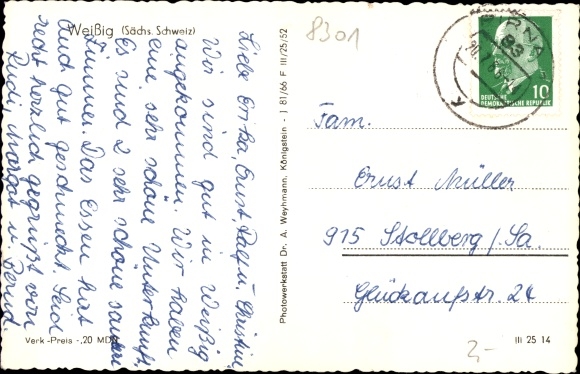 Weißig (Sächs. Schweiz)
Liebe Erika, Ernst, Ralf u. Christin,
Wir sind gut in Weißig
angekommen. Wir haben
eine sehr schöne Unterkunft,
Es sind 2 sehr schöne saubere
Zimmer. Das Essen hat
auch gut geschmeckt. Seid
recht herzlich gegrüßt von
Rudi, Margot u.
Bernd.
Verk.-Preis -,20 MDN
Photowerkstatt Dr. A. Weyhmann, Königstein - J 81/66 F III/25/52
8301
PIRNA
83
10
DEUTSCHE
DEMOKRATISCHE REPUBLIK
Fam.
Ernst Müller
915 Stollberg /Sa.
Glückaufstr. 24
III 25 14
2,-